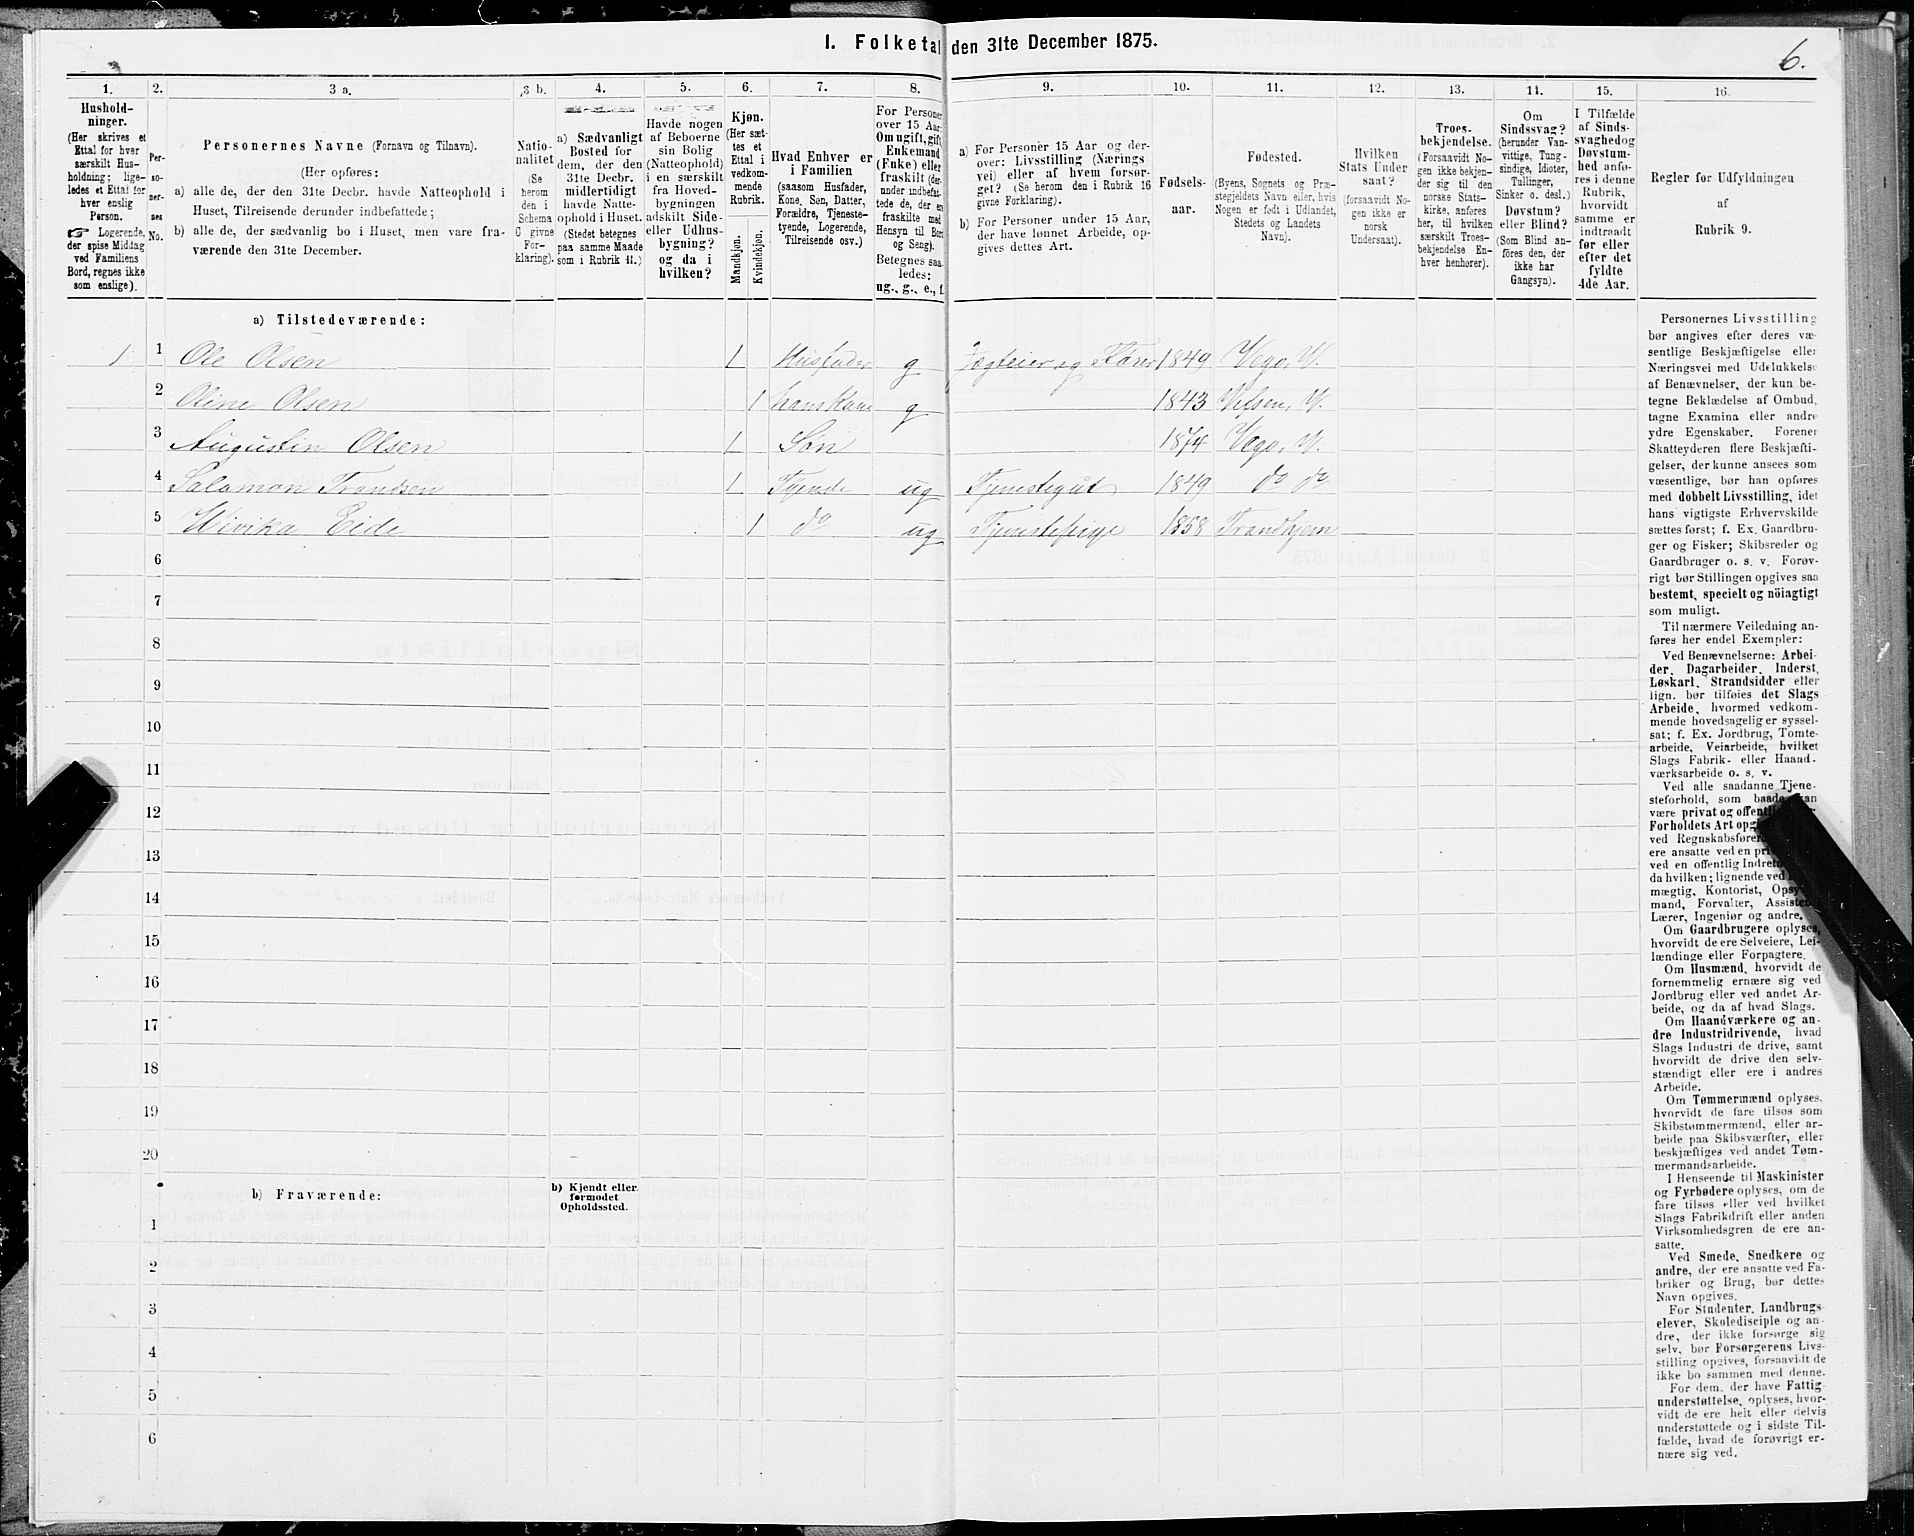 I. Folketal den 31te December 1875.
6.
1.
Hushold-
ninger.
(Her skrives et
Ettal for hver
særskilt Hus-
holdning; lige-
ledes et Ettal for
hver enslig
Person.
☞ Logerende,
der spise Middag
ved Familiens
Bord, regnes ikke
som enslige).
2.
Per-
so-
ner-
ses
No.
3 a.
Personernes Navne (Fornavn og Tilnavn).
(Her opføres:
a) alle de, der den 31te Decbr. havde Natteophold i
Huset, Tilreisende derunder indbefattede;
b) alle de, der sædvanlig bo i Huset, men vare fra-
værende den 31te December.
3 b.
Natio-
nalitet
(Se
herom
den i
Schema
C givne
For-
klaring).
4.
a) Sædvanligt
Bosted for
dem, der den
31te Decbr.
midlertidigt
havde Natte-
ophold i Huset.
(Stedet betegnes
paa samme Maade
som i Rubrik 11.)
5.
Havde nogen
af Beboerne
sin Bolig
(Natteophold)
i en særskilt
fra Hoved-
bygningen
adskilt Side-
eller Udhus-
bygning?
og da i
hvilken?
6.
Kjøn.
(Her sæt-
tes et
Ettal i
vedkom-
mende
Rubrik.
Mandkjøn.
Kvindekjøn.
7.
Hvad Enhver er
i Familien
(saasom Husfader,
Kone, Søn, Datter,
Forældre, Tjeneste-
tyende, Logerende,
Tilreisende osv.)
8.
For Personer
over 15 Aar:
Om ugift, gift,
Enkemand
(Enke) eller
fraskilt (der-
under indbefat-
tede de, der ere
fraskilte med
Hensyn til Bord
og Seng).
Betegnes saa-
ledes:
ug., g., e., f.
9.
a) For Personer 15 Aar og der-
over: Livsstilling (Nærings-
vei) eller af hvem forsør-
get? (Se herom den i Rubrik 16
givne Forklaring).
b) For Personer under 15 Aar,
der have lønnet Arbeide, op-
gives dettes Art.
10.
Fødsels-
aar.
11.
Fødested.
(Byens, Sognets og Præ-
stegjeldets Navn eller, hvis
Nogen er født i Udlandet,
Stedets og Landets
Navn).
12.
Hvilken
Stats Under-
saat?
(forsaavidt No-
gen ikke er
norsk
Undersaat).
13.
Troes-
bekjendelse.
(Forsaavidt No-
gen ikke bekjen-
der sig til den
norske Stats-
kirke, anføres
her, til hvilken
særskilt Troes-
bekjendelse En-
hver henhører).
14.
Om
Sindssvag?
(herunder Van-
vittige, Tung-
sindige, Idioter,
Tullinger,
Sinker o. desl.)
Døvstum?
eller Blind?
(Som Blind an-
føres den, der
ikke har
Gangsyn).
15.
I Tilfælde
af Sinds-
svaghed og
Døvstum-
hed anfø-
res i denne
Rubrik,
hvorvidt
samme er
indtraadt
før eller
efter det
fyldte
4de Aar.
16.
Regler for Udfyldningen
af
Rubrik 9.
a) Tilstedeværende:
1 1 Ole Olsen 1 Husfader g Jægteier og Fører 1849 Vego, V.
2 Oline Olsen 1 hans Kone g 1843 Velsen, V.
3 Augustin Olsen 1 Søn 1874 Vego, V.
4 Salamon Trondsen 1 Tyende ug Tjenestegut 1849 do do
5 Hivika Eide 1 do ug Tjenestepige 1858 Trondhjem
6
7
8
9
10
11
12
13
14
15
16
17
18
19
20
b) Fraværende:
b) Kjendt eller
formodet
Opholdssted.
1
2
3
4
5
6
Personernes Livsstilling
bør angives efter deres væ-
sentlige Beskjæftigelse eller
Næringsvei med Udelukkelse
af Benævnelser, der kun be-
tegne Beklædelse af Ombud,
tagne Examina eller andre
ydre Egenskaber. Forener
Skatteyderen flere Beskjæfti-
gelser, der kunne ansees som
væsentlige, bør han opføres
med dobbelt Livsstilling, idet
hans vigtigste Erhvervskilde
sættes først; f. Ex. Gaardbru-
ger og Fisker; Skibsreder og
Gaardbruger o. s. v. Forøv-
rigt bør Stillingen opgives saa
bestemt, specielt og nöiagtigt
som muligt.
Til nærmere Veiledning an-
føres her endel Exempler:
Ved Benævnelserne: Arbei-
der, Dagarbeider, Inderst,
Løskarl, Strandsidder eller
lign. bør tilføies det Slags
Arbeide, hvormed vedkom-
mende hovedsagelig er syssel-
sat; f. Ex. Jordbrug, Tomte-
arbeide, Veiarbeide, hvilket
Slags Fabrik- eller Haand-
værksarbeide o. s. v.
Ved alle saadanne Tjene-
steforhold, som baade kan
være privat og offentligt,
Forholdets Art opg
ved Regnskabsfører
ere ansatte ved en pri
ved en offentlig Indret
da hvilken; lignende ved
mægtig, Kontorist, Opsyns-
mand, Forvalter, Assistent,
Lærer, Ingeniør og andre.
Om Gaardbrugere oplyses,
hvorvidt de ere Selveiere, Lei-
lændinge eller Forpagtere.
Om Husmænd, hvorvidt de
fornemmelig ernære sig ved
Jordbrug eller ved andet Ar-
beide, og da af hvad Slags.
Om Haandværkere og an-
dre Industridrivende, hvad
Slags Industri de drive, samt
hvorvidt de drive den selv-
stændigt eller ere i andres
Arbeide.
Om Tømmermænd oplyses,
hvorvidt de fare tilsøs som
Skibstømmermænd, eller ar-
beide paa Skibsværfter, eller
beskjæftiges ved andet Tøm-
mermandsarbeide.
I Henseende til Maskinister
og Fyrbødere oplyses, om de
fare tilsøs eller ved hvilket
Slags Fabrikdrift eller anden
Virksomhedsgren de ere an-
satte.
Ved Smede, Snedkere og
andre, der ere ansatte ved Fa-
briker og Brug, bør dettes
Navn opgives.
For Studenter, Landbrugs-
elever, Skoledisciple og an-
dre, der ikke forsørge sig
selv, bør Forsørgerens Livs-
stilling opgives, forsaavidt de
ikke bo sammen med denne.
For dem, der have Fattig-
understøttelse, oplyses, hvor-
vidt de ere helt eller delvis
understøttede og i sidste Til-
fælde, hvad de forøvrigt er-
nære sig ved.